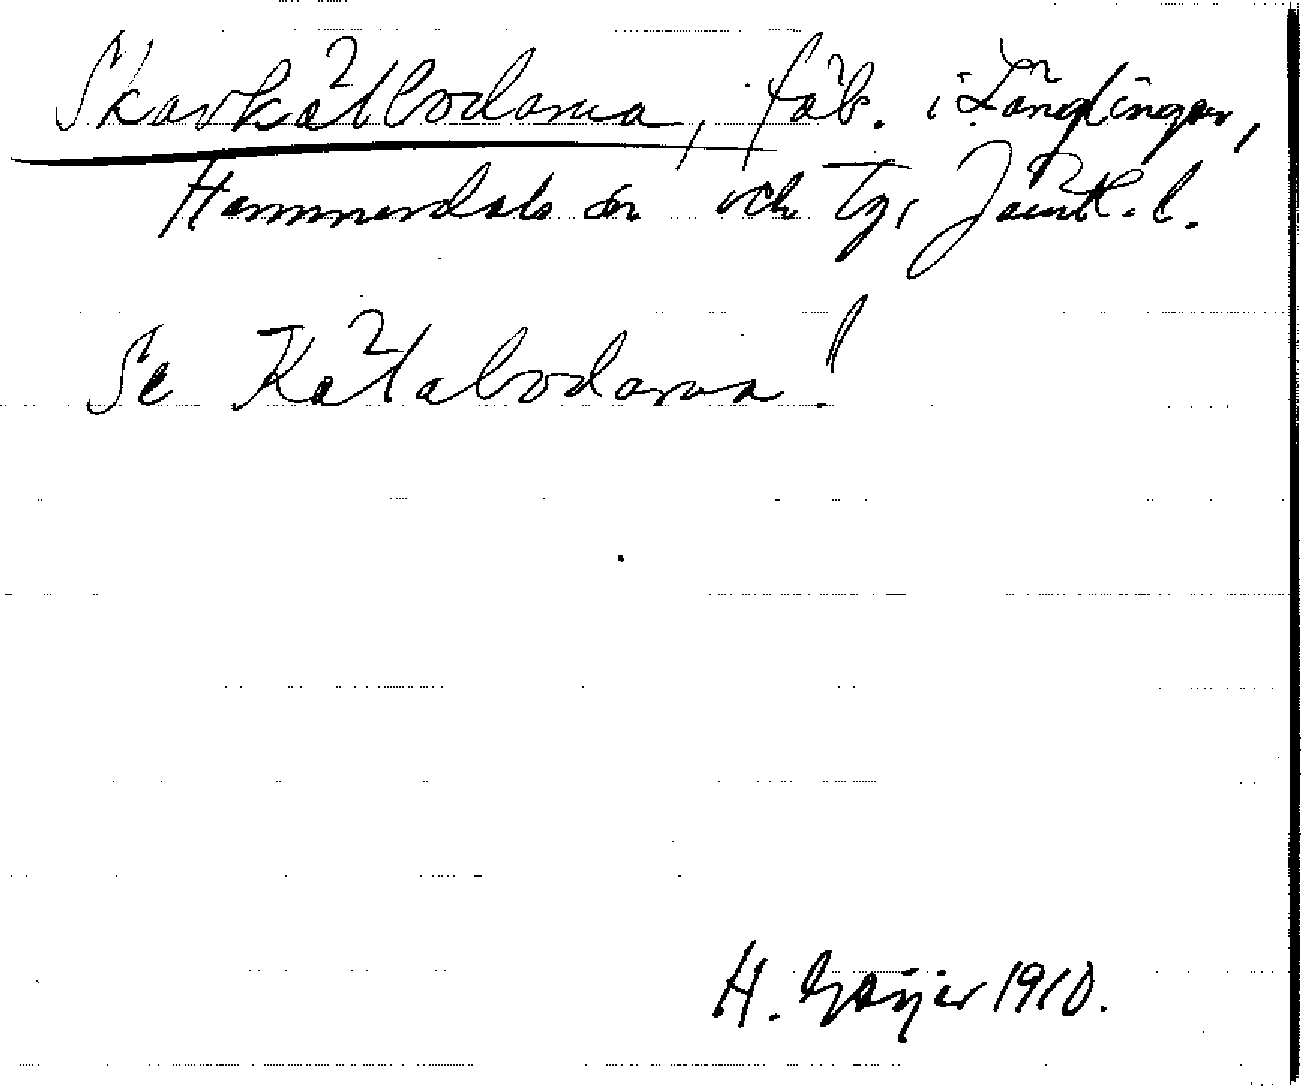 Skavkätlbodarna, fäb. i Långlingen,
Hammerdals sn och tg, Jämtl. l.
Se Kätabodarna!
H. Geijer 1910.